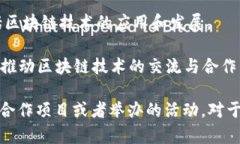 区块链技术的应用和发展。
推动区块链技术的交流与合作
合作项目或者举办的活动，对于